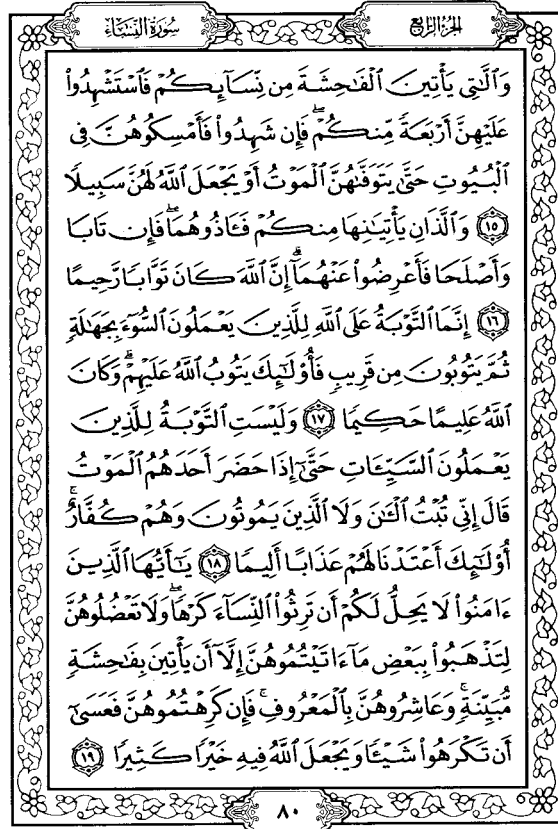 سورة النساء
الجزء الرابع
وَٱلَّٰتِى يَأْتِينَ ٱلْفَٰحِشَةَ مِن نِّسَآئِكُمْ فَٱسْتَشْهِدُوا۟
عَلَيْهِنَّ أَرْبَعَةً مِّنكُمْ ۖ فَإِن شَهِدُوا۟ فَأَمْسِكُوهُنَّ فِى
ٱلْبُيُوتِ حَتَّىٰ يَتَوَفَّىٰهُنَّ ٱلْمَوْتُ أَوْ يَجْعَلَ ٱللَّهُ لَهُنَّ سَبِيلًا
١٥ وَٱلَّذَانِ يَأْتِيَٰنِهَا مِنكُمْ فَـَٔاذُوهُمَا ۖ فَإِن تَابَا
وَأَصْلَحَا فَأَعْرِضُوا۟ عَنْهُمَآ ۗ إِنَّ ٱللَّهَ كَانَ تَوَّابًا رَّحِيمًا
١٦ إِنَّمَا ٱلتَّوْبَةُ عَلَى ٱللَّهِ لِلَّذِينَ يَعْمَلُونَ ٱلسُّوٓءَ بِجَهَٰلَةٍ
ثُمَّ يَتُوبُونَ مِن قَرِيبٍ فَأُو۟لَٰٓئِكَ يَتُوبُ ٱللَّهُ عَلَيْهِمْ ۗ وَكَانَ
ٱللَّهُ عَلِيمًا حَكِيمًا ١٧ وَلَيْسَتِ ٱلتَّوْبَةُ لِلَّذِينَ
يَعْمَلُونَ ٱلسَّيِّـَٔاتِ حَتَّىٰٓ إِذَا حَضَرَ أَحَدَهُمُ ٱلْمَوْتُ
قَالَ إِنِّى تُبْتُ ٱلْـَٰٔنَ وَلَا ٱلَّذِينَ يَمُوتُونَ وَهُمْ كُفَّارٌ ۚ
أُو۟لَٰٓئِكَ أَعْتَدْنَا لَهُمْ عَذَابًا أَلِيمًا ١٨ يَٰٓأَيُّهَا ٱلَّذِينَ
ءَامَنُوا۟ لَا يَحِلُّ لَكُمْ أَن تَرِثُوا۟ ٱلنِّسَآءَ كَرْهًا ۖ وَلَا تَعْضُلُوهُنَّ
لِتَذْهَبُوا۟ بِبَعْضِ مَآ ءَاتَيْتُمُوهُنَّ إِلَّآ أَن يَأْتِينَ بِفَٰحِشَةٍ
مُّبَيِّنَةٍ ۚ وَعَاشِرُوهُنَّ بِٱلْمَعْرُوفِ ۚ فَإِن كَرِهْتُمُوهُنَّ فَعَسَىٰٓ
أَن تَكْرَهُوا۟ شَيْـًٔا وَيَجْعَلَ ٱللَّهُ فِيهِ خَيْرًا كَثِيرًا ١٩
٨٠